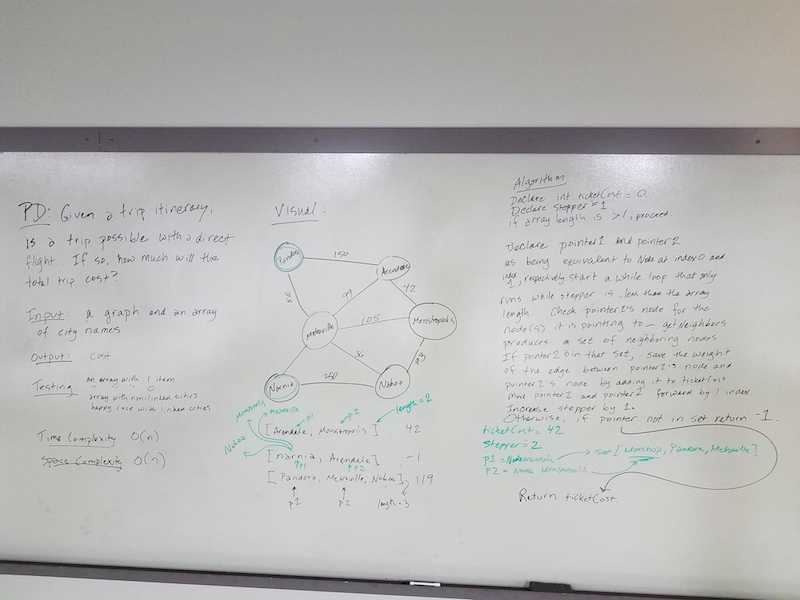 PD: Given a trip itinerary,
is a trip possible with a direct
flight. If so, how much will the
total trip cost?
Input a graph and an array
of city names
Output: cost
Testing an array with 1 item
array with non linked cities
happy case with linked cities
Time Complexity O(n)
Space Complexity O(n)
Visual.
Pandora
150
Arendale
99
42
Metroville
105
Monstropolis
Narnia
250
Naboo
73
Monstropolis Metroville
Naboo
p1
p2
length = 2
[Arendale, Monstropolis] 42
[Narnia, Arendale] -1
p1 p2
[Pandora, Metroville, Naboo, 119
p1 p2 length = 3
Algorithm
Declare int ticketCost = 0
Declare stepper = 1
if array length is > 1, proceed.
Declare pointer1 and pointer2
as being equivalent to Node at index 0 and
index 1, respectively start a while loop that only
runs while stepper is less than the array
length. Check pointer1's node for the
node(s) it is pointing to — getNeighbors
produces a set of neighboring nodes
If pointer2 is in that set, save the weight
of the edge between pointer1's node and
pointer2's node by adding it to ticketCost
move pointer1 and pointer2 forward by 1 index
Increase stepper by 1.
Otherwise, if pointer not in set return -1.
ticketCost = 42
stepper = 2
p1 =
set [ , Pandora, Metroville]
p2 =
Return ticketCost.